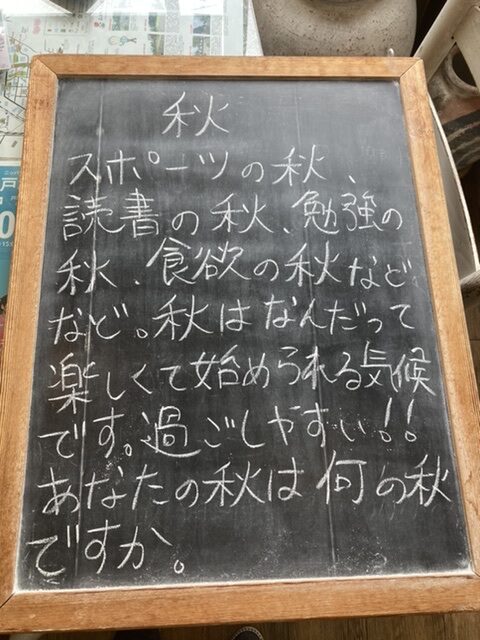 秋
スポーツの秋、
読書の秋、勉強の
秋、食欲の秋など
など。秋はなんだって
楽しくて始められる気候
です。過ごしやすい!!
あなたの秋は何の秋
ですか。